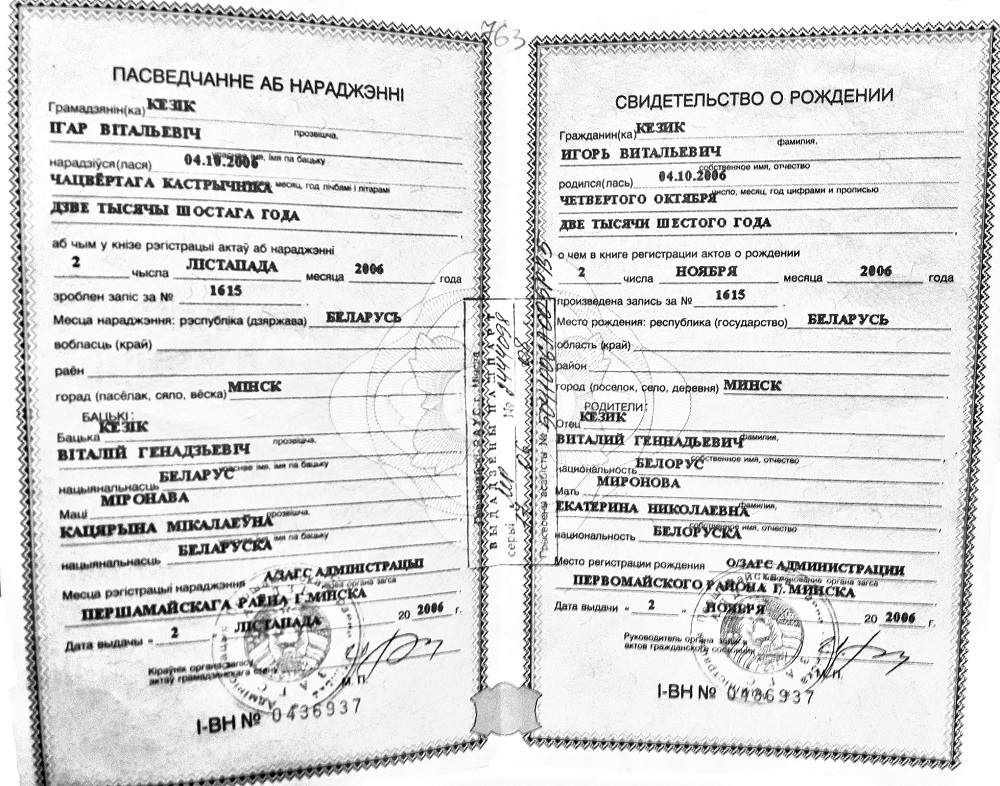 763
ПАСВЕДЧАННЕ АБ НАРАДЖЭННІ
Грамадзянін(ка) КЕЗІК
ІГАР ВІТАЛЬЕВІЧ
прозвішча,
нарадзіўся(лася) 04.10.2006 імя па бацьку
ЧАЦВЁРТАГА КАСТРЫЧНІКА месяц, год лічбамі і літарамі
ДЗВЕ ТЫСЯЧЫ ШОСТАГА ГОДА
аб чым у кнізе рэгістрацыі актаў аб нараджэнні
2 чысла ЛІСТАПАДА месяца 2006 года
зроблен запіс за № 1615
Месца нараджэння: рэспубліка (дзяржава) БЕЛАРУСЬ
вобласць (край)
раён
горад (пасёлак, сяло, вёска) МІНСК
БАЦЬКІ:
Бацька КЕЗІК
прозвішча,
ВІТАЛІЙ ГЕНАДЗЬЕВІЧ
уласнае імя, імя па бацьку
нацыянальнасць БЕЛАРУС
Маці МІРОНАВА
прозвішча,
КАЦЯРЫНА МІКАЛАЕЎНА
уласнае імя, імя па бацьку
нацыянальнасць БЕЛАРУСКА
Месца рэгістрацыі нараджэння А/ЗАГС АДМІНІСТРАЦЫІ
назва органа загса
ПЕРШАМАЙСКАГА РАЁНА Г.МІНСКА
Дата выдачы " 2 " ЛІСТАПАДА 20 2006 г.
Кіраўнік органа запісу
актаў грамадзянскага стану
М.П.
І-ВН № 0436937
ВЫДАДЗЕНЫ ПАШПАРТ
серыі МР № 2444098
СВИДЕТЕЛЬСТВО О РОЖДЕНИИ
Гражданин(ка) КЕЗИК
фамилия,
ИГОРЬ ВИТАЛЬЕВИЧ
собственное имя, отчество
родился(лась) 04.10.2006
число, месяц, год цифрами и прописью
ЧЕТВЕРТОГО ОКТЯБРЯ
ДВЕ ТЫСЯЧИ ШЕСТОГО ГОДА
о чем в книге регистрации актов о рождении
2 числа НОЯБРЯ месяца 2006 года
произведена запись за № 1615
Место рождения: республика (государство) БЕЛАРУСЬ
область (край)
район
город (поселок, село, деревня) МИНСК
РОДИТЕЛИ:
Отец КЕЗИК
фамилия,
ВИТАЛИЙ ГЕННАДЬЕВИЧ
собственное имя, отчество
национальность БЕЛОРУС
Мать МИРОНОВА
фамилия,
ЕКАТЕРИНА НИКОЛАЕВНА
собственное имя, отчество
национальность БЕЛОРУСКА
Место регистрации рождения О/ЗАГС АДМИНИСТРАЦИИ
наименование органа загса
ПЕРВОМАЙСКОГО РАЙОНА Г.МИНСКА
Дата выдачи " 2 " НОЯБРЯ 20 2006 г.
Руководитель органа записи
актов гражданского состояния
М.П.
І-ВН № 0436937